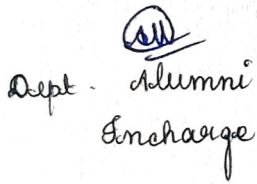 Dept. Alumni
Incharge